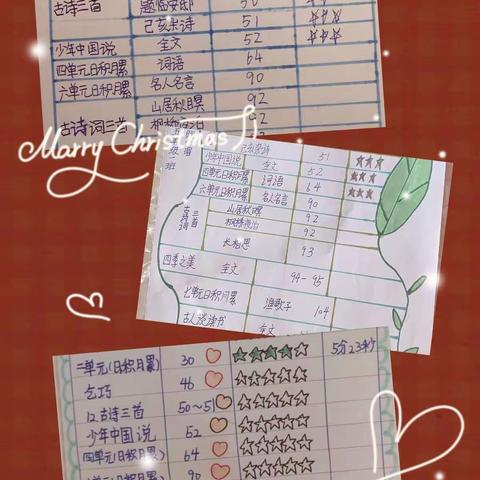 古诗三首 题临安邸 50
己亥杂诗 51
少年中国说 全文 52
四单元日积月累 词语 64
六单元日积月累 名人名言 90
山居秋暝 92
古诗词三首 枫桥夜泊 92
Marry Christmas
班
己亥杂诗 51
少年中国说 全文 52
四单元日积月累 词语 64
六单元日积月累 名人名言 90
山居秋暝 92
枫桥夜泊 92
长相思 93
四季之美 全文 94-95
七单元日积月累 渔歌子 104
古人谈读书 全文
二单元(日积月累) 30 5分23秒
乞巧 46
12古诗三首 50~51
少年中国说 52
四单元(日积月累) 64
90